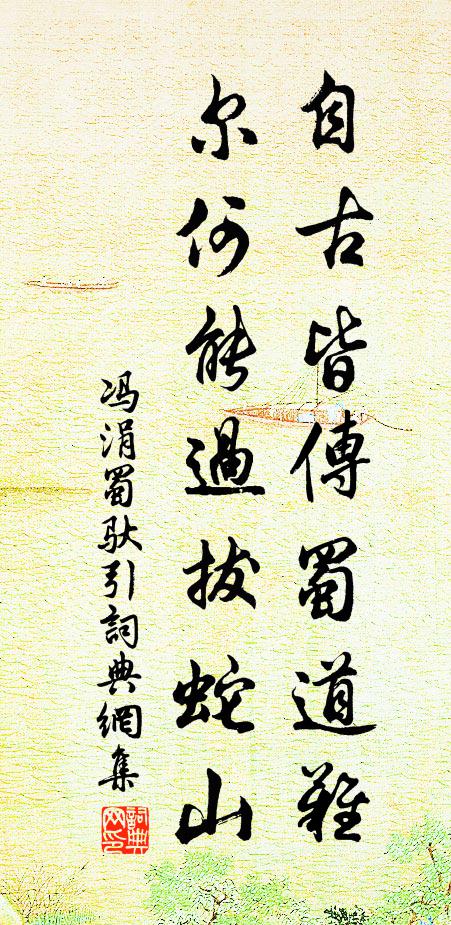 自古皆傳蜀道難
尔何能過拔蛇山
冯涓蜀馱引詞典網集
詞典網印